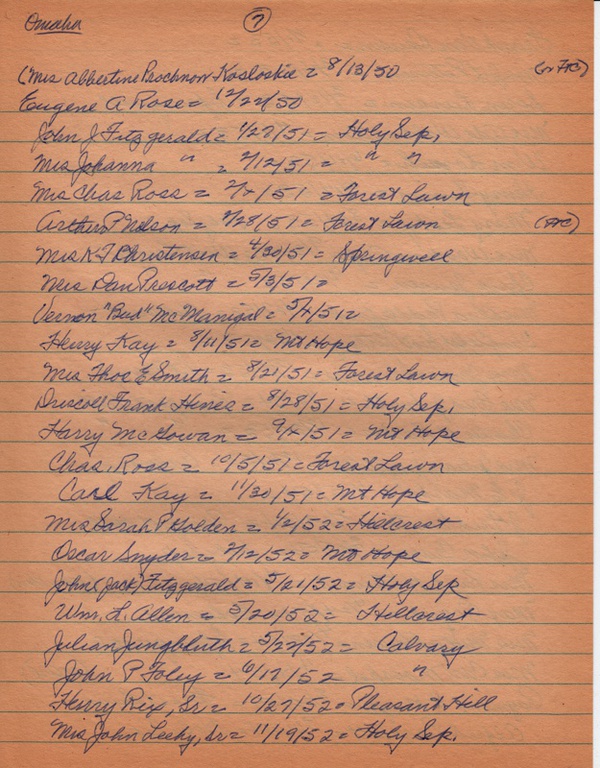 Omaha 7
(Mrs Albertine Prochnow-Kosloskie = 8/13/50 (or FtC)
Eugene A Rose = 12/22/50
John J Fitzgerald = 1/27/51 = Holy Sep.
Mrs Johanna " = 2/12/51 = " "
Mrs Chas Ross = 2/x/51 = Forest Lawn
Arthur P Nelson = 2/28/51 = Forest Lawn (FtC)
Mrs K F Christensen = 4/30/51 = Springwell
Mrs Dan Prescott = 5/3/51 =
Vernon "Bud" McManigal = 5/x/51 =
Henry Kay = 8/11/51 = Mt Hope
Mrs Thos E Smith = 8/21/51 = Forest Lawn
Driscoll Frank Hines = 8/28/51 = Holy Sep.
Harry McGowan = 9/x/51 = Mt Hope
Chas. Ross = 10/5/51 = Forest Lawn
Carl Kay = 11/30/51 = Mt Hope
Mrs Sarah P Golden = 1/2/52 = Hillcrest
Oscar Snyder = 2/12/52 = Mt Hope
John (Jack) Fitzgerald = 5/21/52 = Holy Sep
Wm. L. Allen = 5/20/52 = Hillcrest
Julian Jungbluth = 5/22/52 = Calvary
John P Foley = 6/17/52 "
Henry Rix, Sr = 10/27/52 = Pleasant Hill
Mrs John Leehy, Sr = 11/19/52 = Holy Sep.